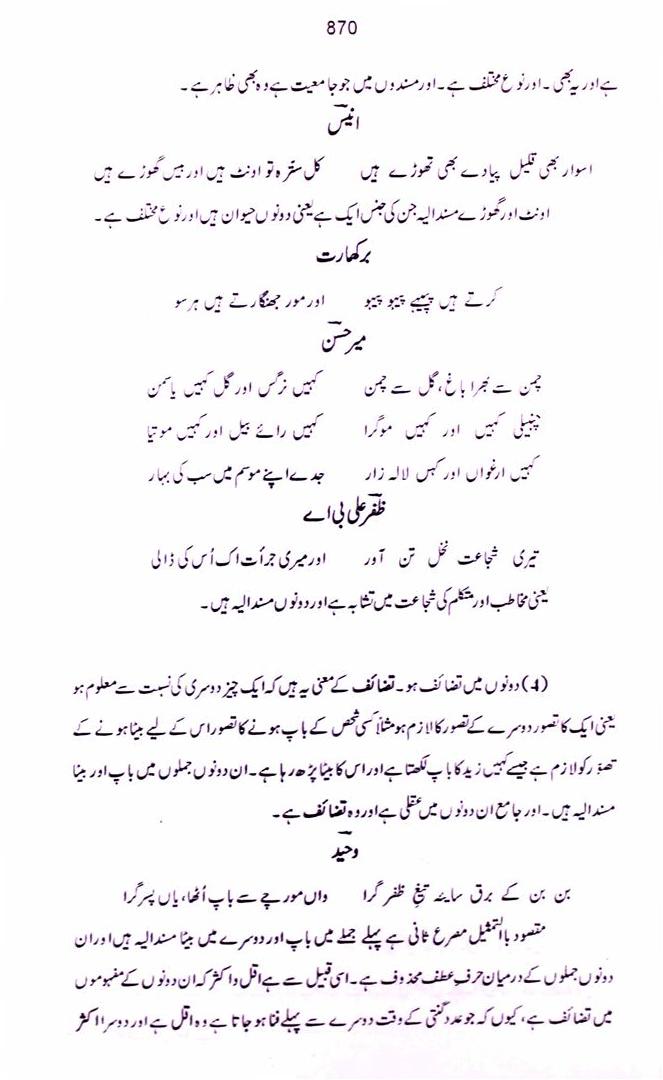 870
ہے اور یہ بھی ۔ اور نوع مختلف ہے ۔ اور مسندوں میں جو جامعیت ہے وہ بھی ظاہر ہے ۔
انیسؔ
اسوار بھی قلیل پیادے بھی تھوڑے ہیں کل سترہ تو اونٹ ہیں اور بیس گھوڑے ہیں
اونٹ اور گھوڑے مسند الیہ جن کی جنس ایک ہے یعنی دونوں حیوان ہیں اور نوع مختلف ہے ۔
برکھارت
کرتے ہیں پپیہے پیہو پیہو اور مور جھنگارتے ہیں ہر سو
میر حسنؔ
چمن سے بھرا باغ، گل سے چمن کہیں نرگس اور گل کہیں یاسمن
چنبیلی کہیں اور کہیں موگرا کہیں رائے بیل اور کہیں موتیا
کہیں ارغواں اور کہیں لالہ زار جدے اپنے موسم میں سب کی بہار
ظفرؔ علی بی اے
تیری شجاعت نخل تن آور اور میری جرأت اک اُس کی ڈالی
یعنی مخاطب اور متکلم کی شجاعت میں تشابہ ہے اور دونوں مسند الیہ ہیں ۔
(4) دونوں میں تضائف ہو ۔ تضائف کے معنی یہ ہیں کہ ایک چیز دوسری کی نسبت سے معلوم ہو
یعنی ایک کا تصور دوسرے کے تصور کا لازم ہو مثلاً کسی شخص کے باپ ہونے کا تصور اس کے لیے بیٹا ہونے کے
تصوّر کو لازم ہے جیسے کہیں زید کا باپ لکھتا ہے اور اس کا بیٹا پڑھ رہا ہے ۔ ان دونوں جملوں میں باپ اور بیٹا
مسند الیہ ہیں ۔ اور جامع ان دونوں میں عقلی ہے اور وہ تضائف ہے ۔
وحیدؔ
بن بن کے برق سایۂ تیغِ ظفر گرا واں مورچے سے باپ اُٹھا، یاں پسر گرا
مقصود بالتمثیل مصرع ثانی ہے پہلے جملے میں باپ اور دوسرے میں بیٹا مسند الیہ ہیں اور ان
دونوں جملوں کے درمیان حرفِ عطف محذوف ہے ۔ اسی قبیل سے ہے اقل و اکثر کہ ان دونوں کے مفہوموں
میں تضائف ہے، کیوں کہ جو عدد گنتی کے وقت دوسرے سے پہلے فنا ہو جاتا ہے وہ اقل ہے اور دوسرا اکثر